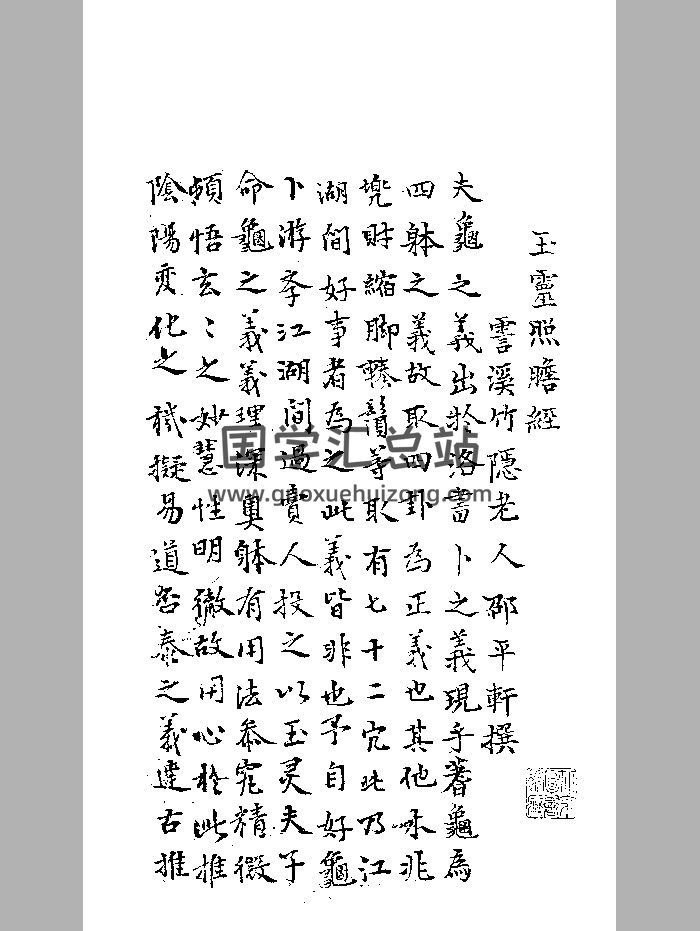 玉靈照瞻經
霅溪竹隱老人邵平軒撰
夫龜之義出於洛書卜之義現乎蓍龜為
四躰之義故取四卦為正義也其他咊兆
兠財縮脚轉鬚等取有七十二宂此乃江
湖間好事者為之此義皆非也予自好龜
卜游李江湖間過賣人投之以玉灵夫子
命龜之義義理深奧躰有用法叅究精微
頓悟玄〻之妙慧性明徹故用心於此推
陰陽变化之機擬易道否泰之義達古推
国学汇总站
www.gaoxuehuizong.com